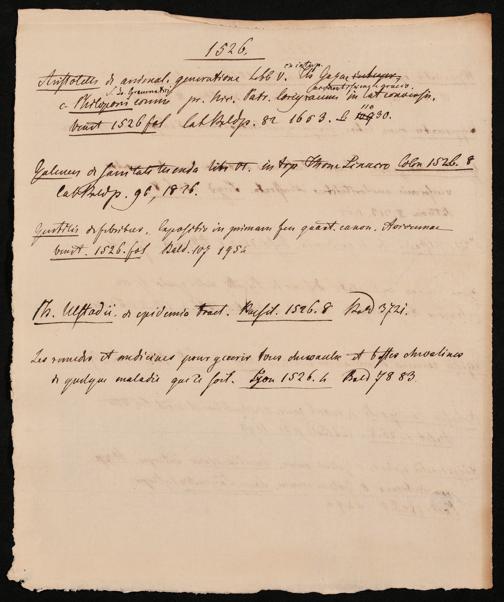 1526.
Aristoteles de animal. generatione Libb V. ex interp. Th. Gazae
c. Philoponi comm. pr. Nic. Petr. Corcyraeum in lat. conversis.
Venet 1526 fol Cat. Baldp. 82 1653. 30.
Galenus de sanitate tuenda libri VI. interp Thoma Linacro Colon 1526. 8
Cat. Baldp. 96, 1826.
Gentilis de febribus. Expositio in primam fen quart. canon. Avicennae
Venet. 1526. fol Bald. 107 1954
Ph. Ulstadii. de epidemia tract. Basil. 1526. 8 Bald 3721.
Les remedes et medicines pour guerir tous chevaulx et bestes chevalines
de quelque maladie que ce soit. Lyon 1526. 4 Bald 7883